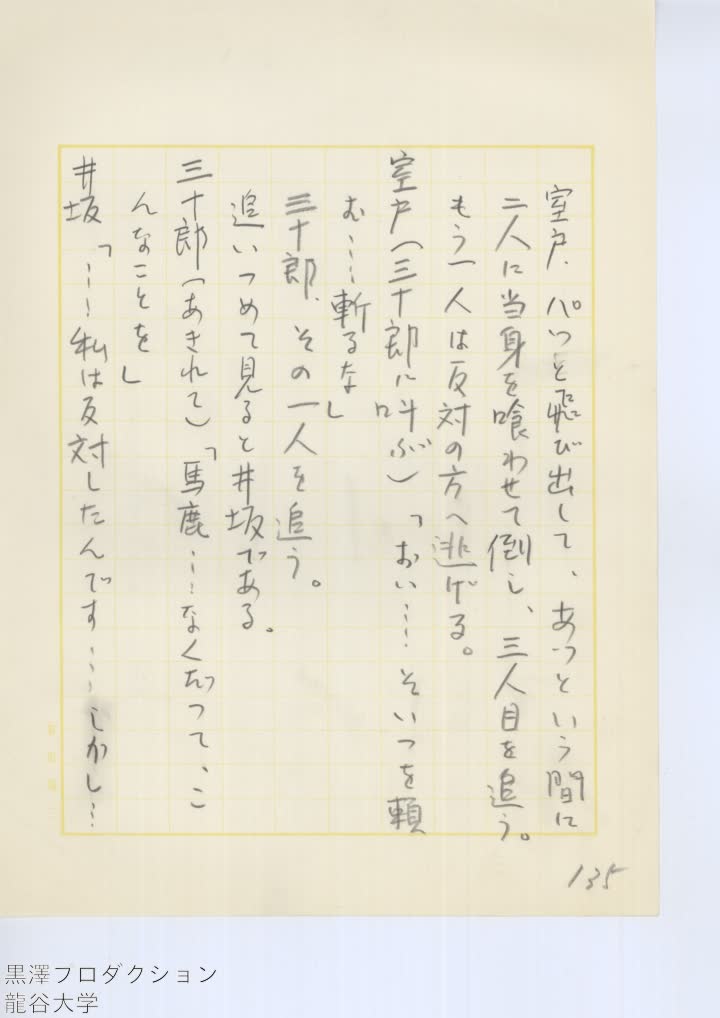 室戸、パッと飛び出して、あっという間に
二人に当身を喰わせて倒し、三人目を追う。
もう一人は反対の方へ逃げる。
室戸（三十郎に叫ぶ）「おい……そいつを頼
む……斬るな」
三十郎、その一人を追う。
追いつめて見ると井坂である。
三十郎（あきれて）「馬鹿……なくだって、こ
んなことを」
井坂「……私は反対したんです……しかし…
135
黒澤プロダクション
龍谷大学